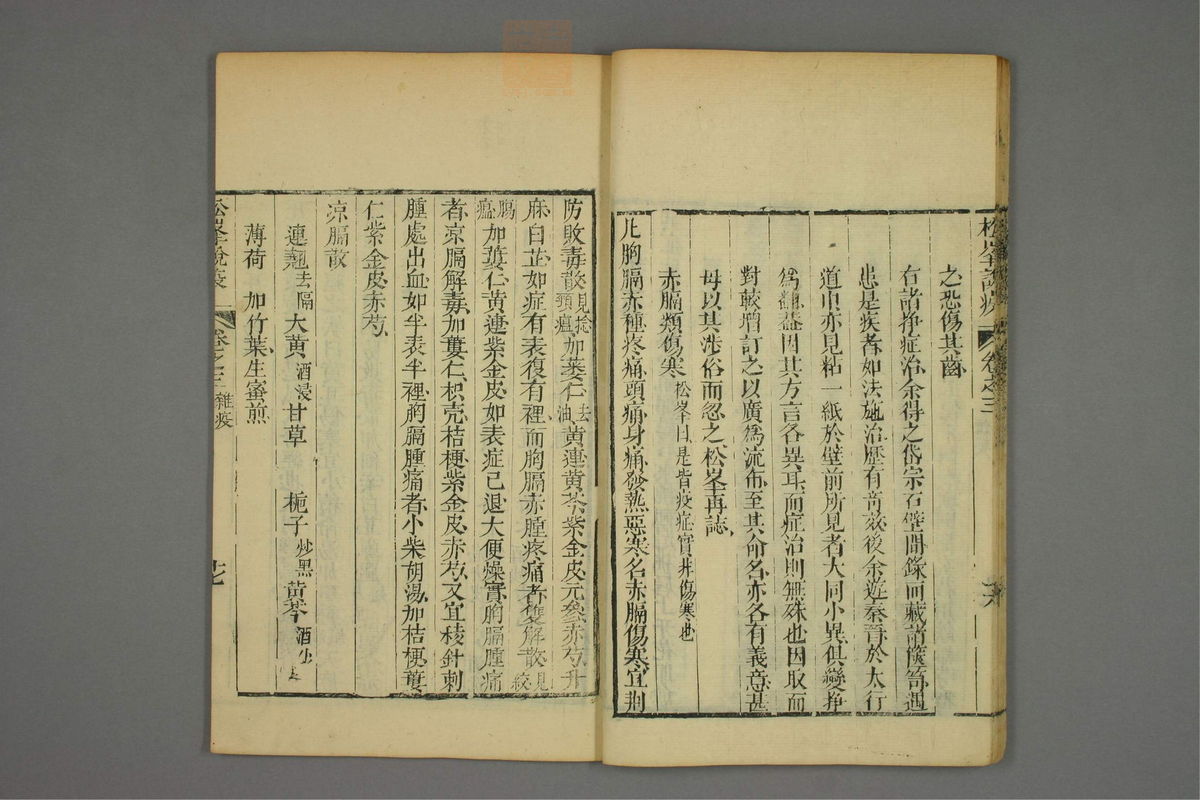 松峯說疫 卷之三
之恐傷其齒
右諸掙症治余得之岱宗石壁間錄而藏諸篋笥遇
患是疾者如法施治歷有奇效後余遊秦晉於太行
道中亦見粘一紙於壁前所見者大同小異俱變掙
爲翻葢因其方言各異耳而症治則無殊也因取而
對較增訂之以廣爲流布至其命名亦各有義意甚
毋以其涉俗而忽之松峯再誌
赤膈類傷寒 松峯曰是皆疫症實非傷寒也
凡胸膈赤種疼痛頭痛身痛發熱惡寒名赤膈傷寒宜荆
防敗毒散見捻頸瘟加蔞仁去油黃連黃芩紫金皮元參赤芍升
麻白芷如症有表復有裡而胸膈赤腫疼痛者雙解散見絞
腸瘟加蔞仁黃連紫金皮如表症已退大便燥實胸膈腫痛
者凉膈解毒加蔞仁枳壳桔梗紫金皮赤芍又宜稜針刺
腫處出血如半表半裡胸膈腫痛者小柴胡湯加桔梗蔞
仁紫金皮赤芍
凉膈散
連翹去隔大黃酒浸甘草 梔子炒黑黃芩酒炒
薄荷 加竹葉生蜜煎
松峯說疫 卷之三 雜疫